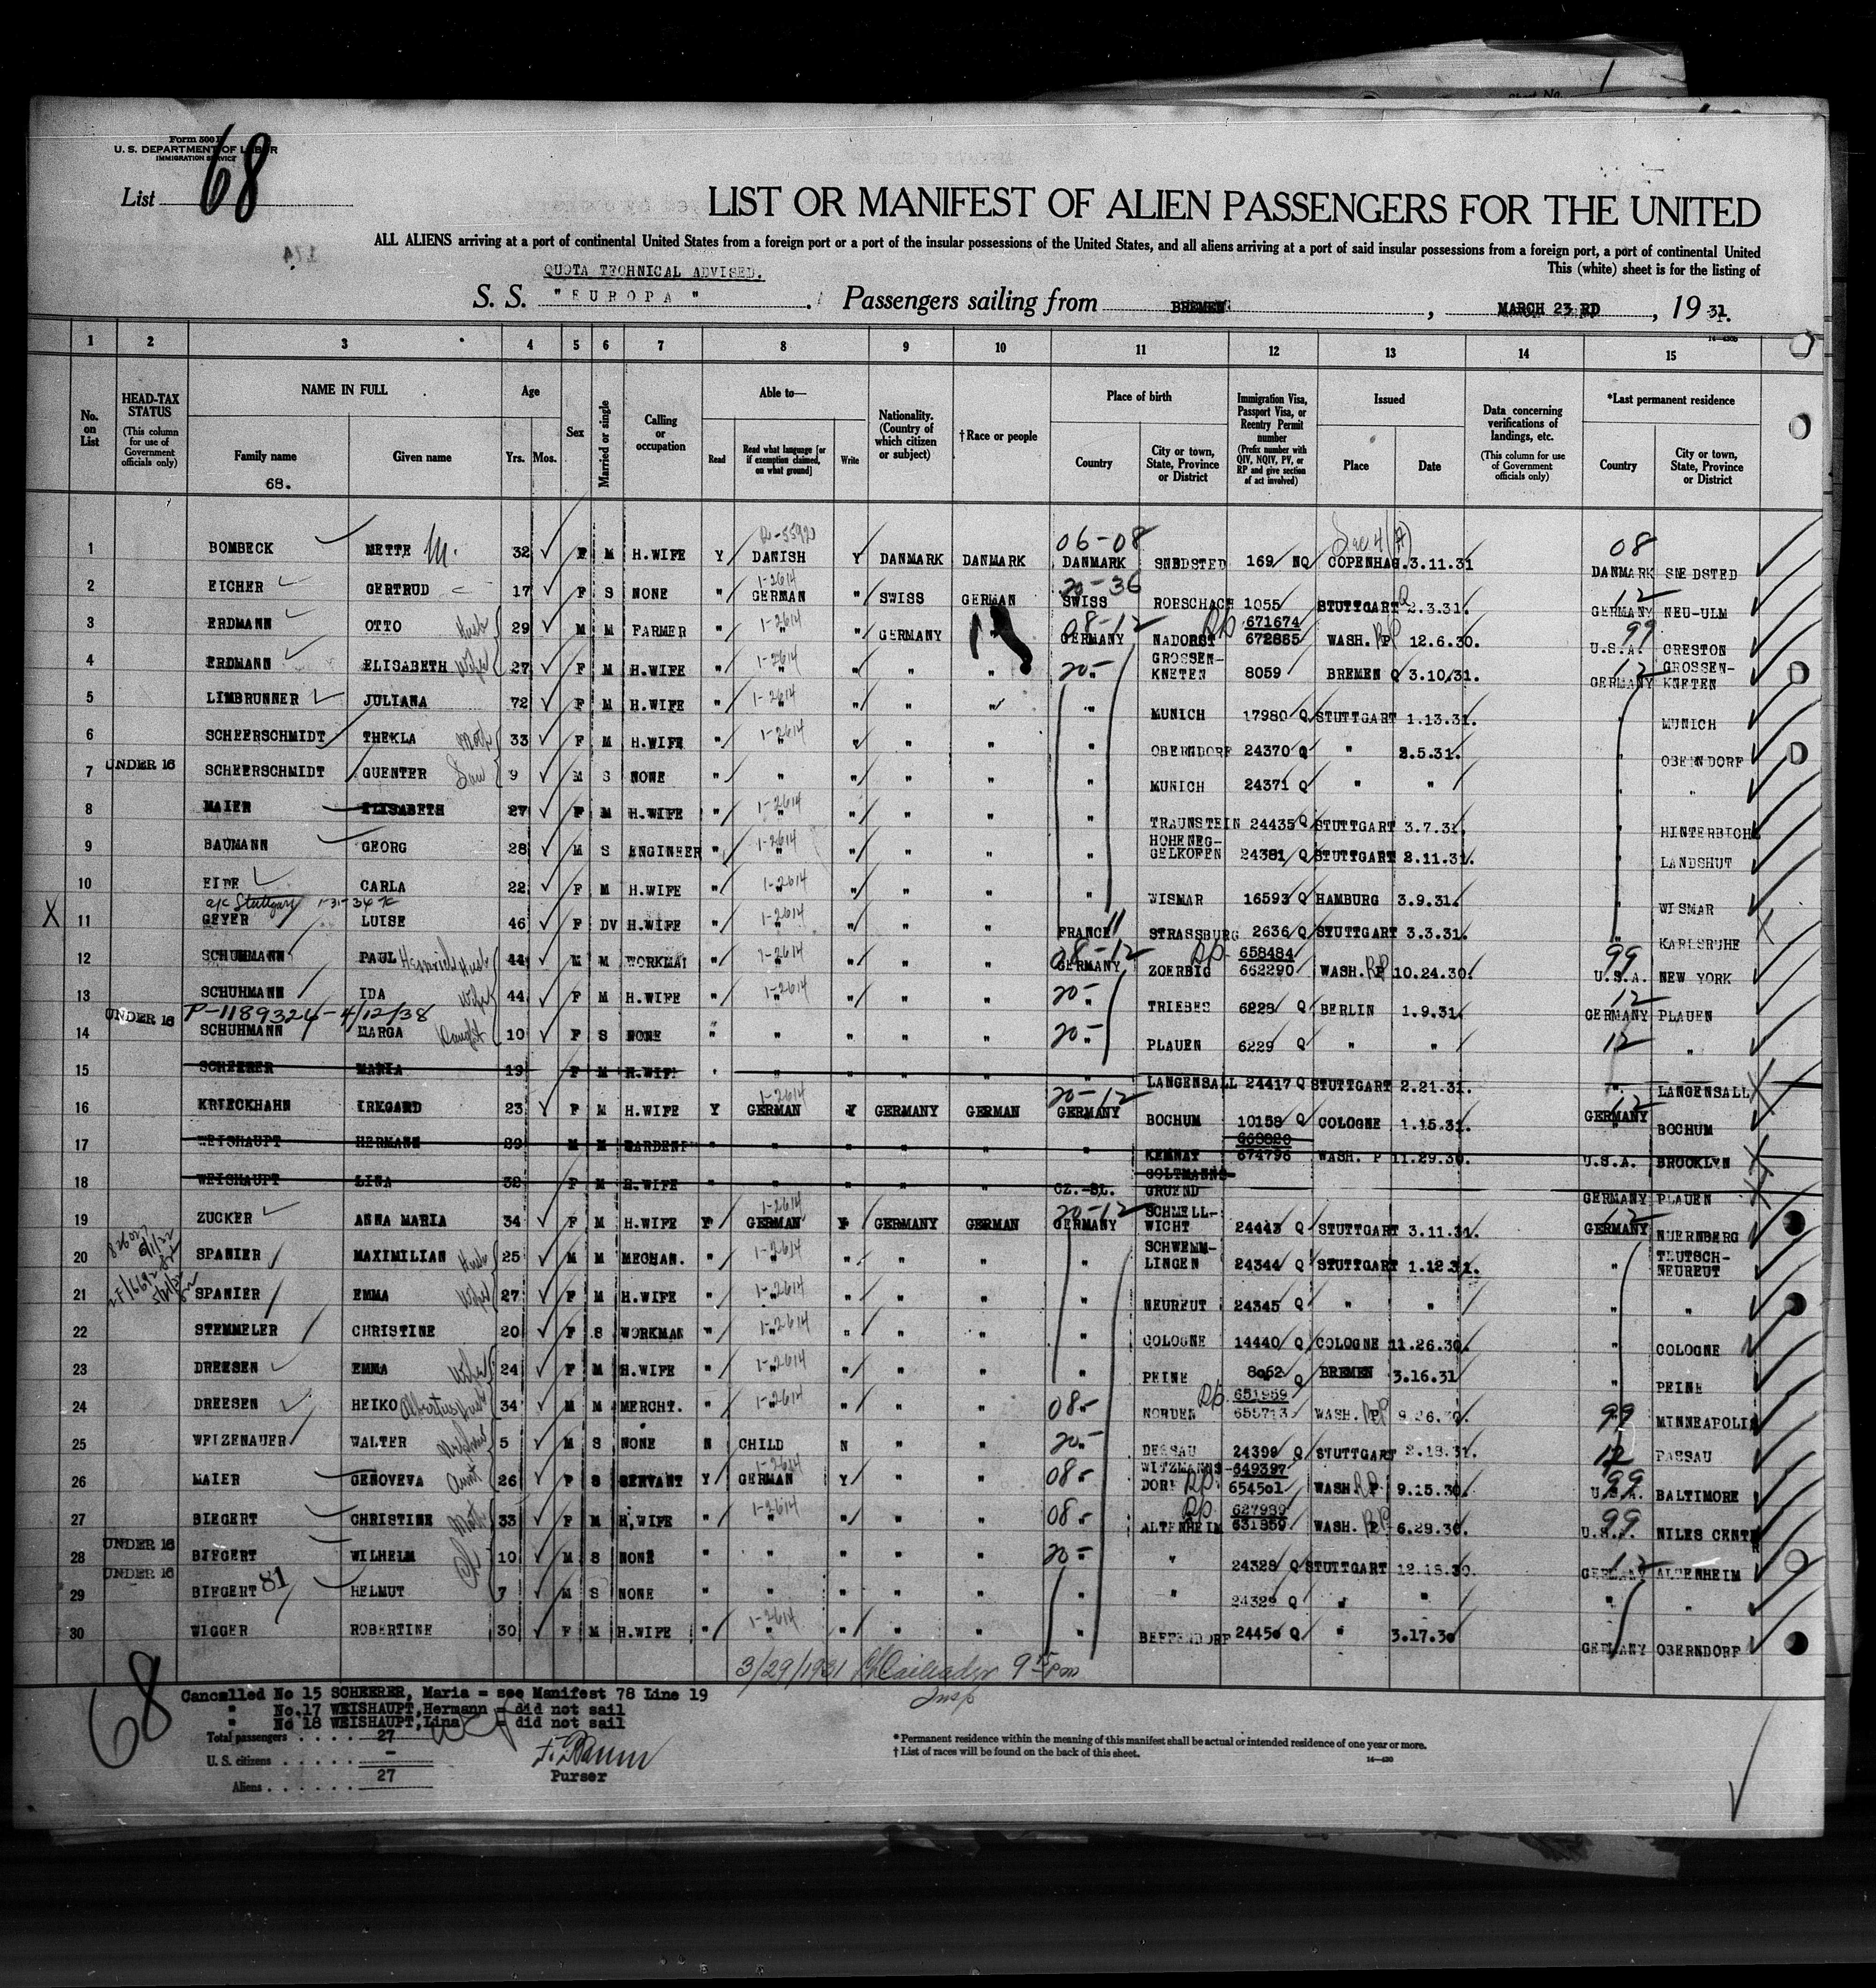 1
Form 500
U. S. DEPARTMENT OF LABOR
IMMIGRATION SERVICE
List 68
LIST OR MANIFEST OF ALIEN PASSENGERS FOR THE UNITED
ALL ALIENS arriving at a port of continental United States from a foreign port or a port of the insular possessions of the United States, and all aliens arriving at a port of said insular possessions from a foreign port, a port of continental United
This (white) sheet is for the listing of
QUOTA TECHNICAL ADVISED.
S. S. "EUROPA" Passengers sailing from BREMEN, MARCH 23 RD, 19 31.
1 2 3 4 5 6 7 8 9 10 11 12 13 14 15
No. on List
HEAD-TAX STATUS (This column for use of Government officials only)
NAME IN FULL
Family name
68.
Given name
Age
Yrs. Mos.
Sex
Married or single
Calling or occupation
Able to—
Read
Read what language [or if exemption claimed, on what ground]
Write
Nationality. (Country of which citizen or subject)
†Race or people
Place of birth
Country
City or town, State, Province or District
Immigration Visa, Passport Visa, or Reentry Permit number (Prefix number with QIV, NQIV, PV, or RP and give section of act involved)
Issued
Place
Date
Data concerning verifications of landings, etc. (This column for use of Government officials only)
*Last permanent residence
Country
City or town, State, Province or District
06-08 08
1 BOMBECK METTE M. 32 F M H.WIFE Y DANISH Y DANMARK DANMARK DANMARK SNEDSTED 169 NQ COPENHAG. 3.11.31 DANMARK SNEDSTED
1-2614 20-36 12
2 EICHER GERTRUD 17 F S NONE " GERMAN " SWISS GERMAN SWISS RORSCHACH 1055 STUTTGART Q 2.3.31. GERMANY NEU-ULM
1-2614 08-12 RP 671674 99
3 ERDMANN OTTO Husb 29 M M FARMER " " " GERMANY " GERMANY NADORST 672885 WASH. RP 12.6.30. U.S.A. CRESTON
1-2614 20- GROSSEN- 12 GROSSEN-
4 ERDMANN ELISABETH Wife 27 F M H.WIFE " " " " " " KNETEN 8059 BREMEN Q 3.10.31. GERMANY KNETEN
1-2614
5 LIMBRUNNER JULIANA 72 F M H.WIFE " " " " " " MUNICH 17980 Q STUTTGART 1.13.31. " MUNICH
1-2614
6 SCHEERSCHMIDT THEKLA Moth 33 F M H.WIFE " " " " " " OBERNDORF 24370 Q " 2.5.31. " OBERNDORF
7 UNDER 16 SCHEERSCHMIDT GUENTER Son 9 M S NONE " " " " " " MUNICH 24371 Q " " " "
1-2614
8 MAIER ELISABETH 27 F M H.WIFE " " " " " " TRAUNSTEIN 24435 Q STUTTGART 3.7.31. " HINTERBICHL
1-2614 HOHENEG-
9 BAUMANN GEORG 28 M S ENGINEER " " " " " " GELKOFEN 24381 Q STUTTGART 2.11.31. " LANDSHUT
1-2614
10 EIDE CARLA 22 F M H.WIFE " " " " " " WISMAR 16593 Q HAMBURG 3.9.31. " WISMAR
a/c Stuttgart 1-31-34
X 11 GEYER LUISE 46 F DV H.WIFE " 1-2614 " " " " FRANCE 11 STRASSBURG 2636 Q STUTTGART 3.3.31. " KARLSRUHE X
1-2614 08-12 RP 658484 99
12 SCHUHMANN PAUL Heinrich Husb 44 M M WORKMAN " " " " " GERMANY ZOERBIG 662290 WASH. RP 10.24.30. U.S.A. NEW YORK
1-2614 20- 12
13 SCHUHMANN IDA Wife 44 F M H.WIFE " " " " " " TRIEBES 6228 Q BERLIN 1.9.31. GERMANY PLAUEN
P-1189324-4/12/38
14 UNDER 16 SCHUHMANN MARGA Daught 10 F S NONE " " " " " 20- " PLAUEN 6229 Q " " 12 "
15 SCHEERER MARIA 19 F M H.WIFE " " " " " " LANGENSALL 24417 Q STUTTGART 2.21.31. " LANGENSALL X
1-2614 20-12 12
16 KRIECKHAHN IRMGARD 23 F M H.WIFE Y GERMAN Y GERMANY GERMAN GERMANY BOCHUM 10158 Q COLOGNE 1.15.31. GERMANY BOCHUM
668820
17 WEISHAUPT HERMANN 39 M M GARDENR " " " " " " KEMNAT 674796 WASH. P 11.29.30. U.S.A. BROOKLYN X
GOLTMANNS-
18 WEISHAUPT LINA 32 F M H.WIFE " " " " " CZ.-SL. GRUEND GERMANY PLAUEN X
1-2614 20-12 SCHMELL- 12
19 ZUCKER ANNA MARIA 34 F M H.WIFE Y GERMAN Y GERMANY GERMAN GERMANY WICHT 24443 Q STUTTGART 3.11.31. GERMANY NUERNBERG
1-2614 SCHWEMM- TEUTSCH-
20 SPANIER MAXIMILIAN Husb 25 M M MECHAN. " " " " " " LINGEN 24344 Q STUTTGART 1.12.31. " NEUREUT
1-2614
21 SPANIER EMMA Wife 27 F M H.WIFE " " " " " " NEUREUT 24345 Q " " " "
1-2614
22 STEMMELER CHRISTINE 20 F S WORKMAN " " " " " " COLOGNE 14440 Q COLOGNE 11.26.30. " COLOGNE
1-2614
23 DREESEN EMMA Wife 24 F M H.WIFE " " " " " " PEINE 8062 Q BREMEN 3.16.31 " PEINE
1-2614 RP 651959
24 DREESEN HEIKO Albertus Husb 34 M M MERCHT. " " " " " 08- NORDEN 655713 WASH. RP 9.26.30. 99 MINNEAPOLIS
25 WEIZENAUER WALTER Nephew 5 M S NONE N CHILD N " " 20- DESSAU 24390 Q STUTTGART 2.18.31. 12 PASSAU
1-2614 WITZMANNS- 649397 99
26 MAIER GENOVEVA Aunt 26 F S SERVANT Y GERMAN Y " " 08- DORF RP 654501 WASH. RP 9.15.30. U.S.A. BALTIMORE
1-2614 RP 627989 99
27 BIEGERT CHRISTINE Moth 33 F M H.WIFE " " " " " 08- ALTENHEIM 631359 WASH. RP 6.28.30. U.S.A. NILES CENTR
28 UNDER 16 BIEGERT WILHELM 10 M S NONE " " " " " 20- " 24328 Q STUTTGART 12.15.30. GERMANY 12 ALTENHEIM
29 UNDER 16 BIEGERT 81 HELMUT 7 M S NONE " " " " " " " 24329 Q " " " "
1-2614
30 WIGGER ROBERTINE 30 F M H.WIFE " " " " " " BEFFENDORF 24450 Q " 3.17.30 GERMANY OBERNDORF
3/29/1931 9 15 pm
Insp
68
Cancelled No 15 SCHEERER, Maria = see Manifest 78 Line 19
" No.17 WEISHAUPT, Hermann = did not sail
" No 18 WEISHAUPT, Lina = did not sail
Total passengers . . . . 27
U. S. citizens . . . . . –
Aliens . . . . . . 27
Purser
* Permanent residence within the meaning of this manifest shall be actual or intended residence of one year or more.
† List of races will be found on the back of this sheet.
14—430